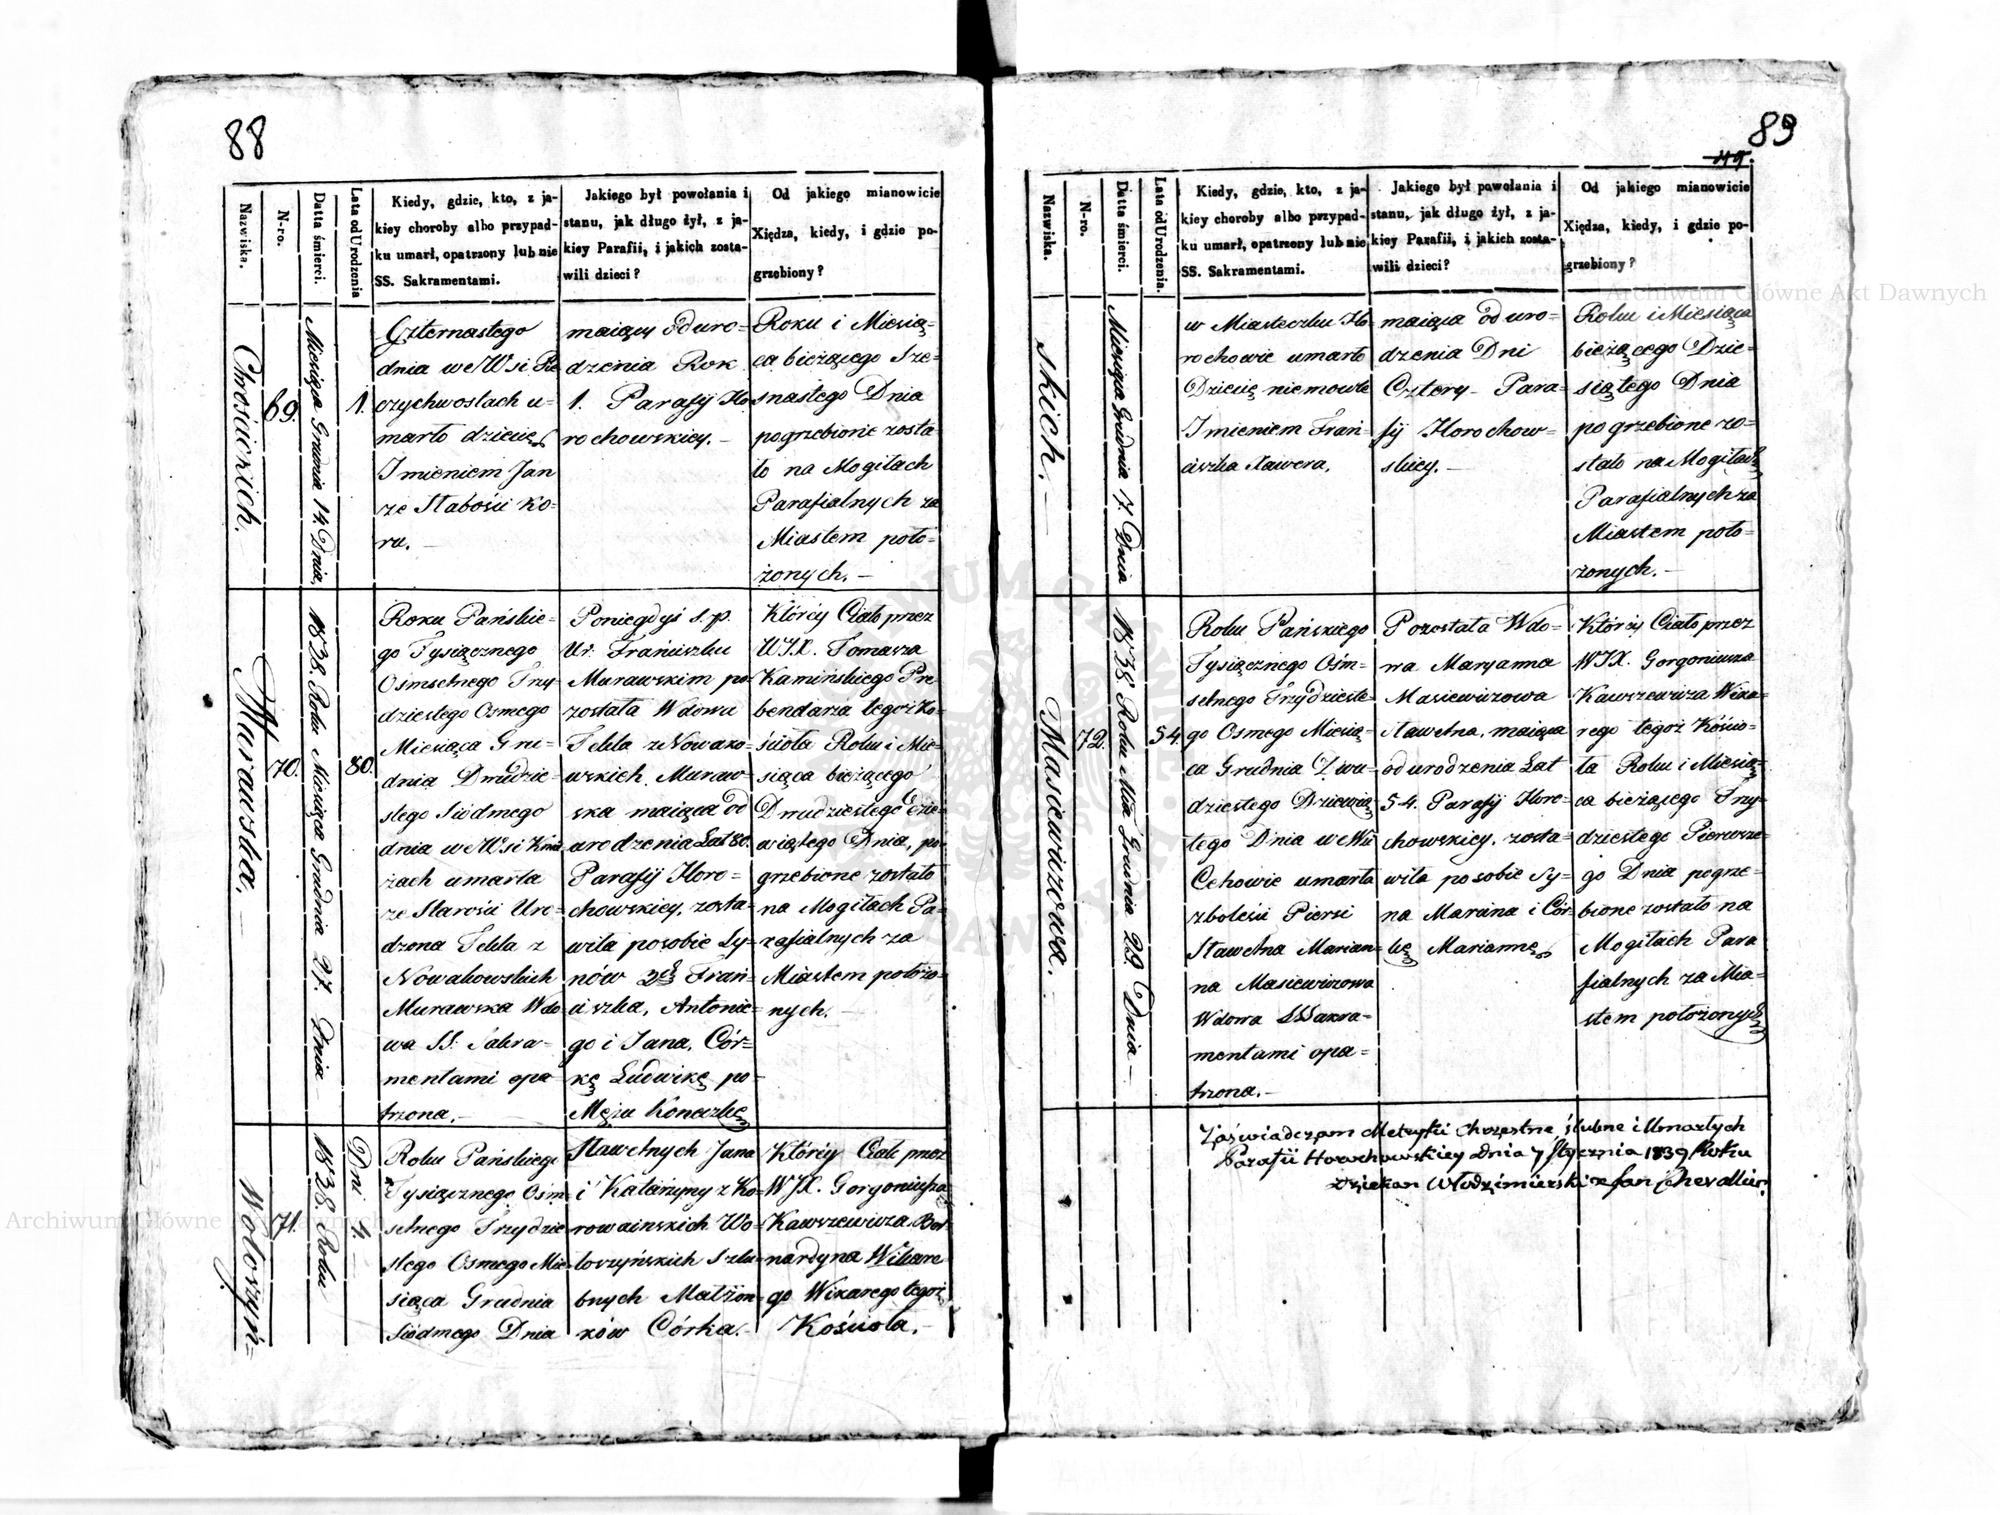 88
Nazwiska.
N-ro.
Datta śmierci.
Lata od Urodzenia
Kiedy, gdzie, kto, z ja-
kiey choroby albo przypad-
ku umarł, opatrzony lub nie
SS. Sakramentami.
Jakiego był powołania i
stanu, jak długo żył, z ja-
kiey Parafii, i jakich zosta-
wili dzieci?
Od jakiego mianowicie
Xiędza, kiedy, i gdzie po-
grzebiony?
Chrościckich.
69.
Miesiąca Grudnia 14. Dnia
1.
Czternastego
dnia we Wsi Pe
czychwostach u=
marło dziecię
Imieniem Jan
ze Słabości Ko=
ru. —
maiący od uro=
dzenia Rok
1. Parafij Ho
rochowskiey. —
Roku i Miesią=
ca bieżącego Sze=
snastego Dnia
pogrzebione zosta
ło na Mogiłach
Parafialnych za
Miastem poło=
żonych. —
Murawska. —
70.
1838. Roku Miesiąca Grudnia 27. Dnia
80
Roku Pańskie=
go Tysiącznego
Ośmsetnego Trzy
dziestego Osmego
Miesiąca Gru=
dnia Dwudzie=
stego Siódmego
dnia we Wsi
żach umarła
ze Starości Uro=
dzona Tekla z
Nowakowskich
Murawska Wdo
wa SS: Sakra=
mentami opa
trzona. —
Poniegdyś s. p.
Ur. Frańciszku
Murawskim po=
została Wdowa
Tekla z Nowako=
wskich Muraw=
ska maiąca od
urodzenia Lat 80.
Parafij Horo=
chowskiey, zosta=
wiła po sobie Sy=
nów Frań=
ciszka, Antonie=
go i Jana, Cór=
kę Ludwikę po=
Mężu Konecką
Którey Ciało przez
WJX. Tomasza
Kamińskiego Pre
bendarza tegoż Ko=
ścioła Roku i Mie=
siąca bieżącego
Dwudziestego Dzie=
wiątego Dnia, po=
grzebione zostało
na Mogiłach Pa=
rafialnych za
Miastem położo=
nych. —
Wołoszyń=
71.
1838. Roku
Dni 4. —
Roku Pańskiego
Tysiącznego Ośm
setnego Trzydzie
stego Osmego Mie
siąca Grudnia
Siódmego Dnia
Sławetnych Jana
i Katarzyny z Ko=
rowainskich Wo=
łoszyńskich Szlu=
bnych Małżon=
ków Córka. —
Którey Ciało przez
WJX. Gorgoniusza
Kawszewicza Ber=
nardyna Wikare
go Wikarego tegoż
Kościoła. —
89
Nazwiska.
N-ro.
Datta śmierci.
Lata od Urodzenia.
Kiedy, gdzie, kto, z ja-
kiey choroby albo przypad-
ku umarł, opatrzony lub nie
SS. Sakramentami.
Jakiego był powołania i
stanu, jak długo żył, z ja-
kiey Parafii, i jakich zosta-
wili dzieci?
Od jakiego mianowicie
Xiędza, kiedy, i gdzie po-
grzebiony?
skich. —
Miesiąca Grudnia 7. Dnia
w Miasteczku Ho=
rochowie umarło
Dziecię niemowle
Imieniem Frań=
ciszka Xawera,
maiąca od uro=
dzenia Dni
Cztery - Para=
fij Horochow=
skiey. —
Roku i Miesiąca
bieżącego Dzie=
siątego Dnia
pogrzebione zo=
stało na Mogiłach
Parafialnych za
Miastem poło=
żonych. —
Masiewiczowa. —
72.
1838 Roku Mca Grudnia 29 Dnia —
54
Roku Pańskiego
Tysiącznego Ośm=
setnego Trzydzieste=
go Osmego Miesią=
ca Grudnia Dwu=
dziestego Dziewią=
tego Dnia w Mie
Cehowie umarła
z boleści Piersi
Sławetna Marian=
na Masiewiczowa
Wdowa SSSakra=
mentami opa=
trzona. —
Pozostała Wdo=
wa Maryanna
Masiewiczowa
sławetna, maiąca
od urodzenia Lat
54. Parafij Horo=
chowskiey, zosta=
wiła po sobie Sy=
na Marcina i Cór=
kę Mariannę
Którey Ciało przez
WJX. Gorgoniusza
Kawszewicza Wika=
rego tegoż Kościo=
ła Roku i Miesią=
ca bieżącego Trzy=
dziestego Pierwsze=
go Dnia pogrze=
bione zostało na
Mogiłach Para
fialnych za Mia=
stem położonych
Zaświadczam Metryki Chrzestne ślubne i Umarłych
Parafii Horochowskiey Dnia 7 Stycznia 1839 Roku
Dziekan Włodzimierski x Jan Chevallier
Archiwum Główne Akt Dawnych
Archiwum Główne Akt Dawnych